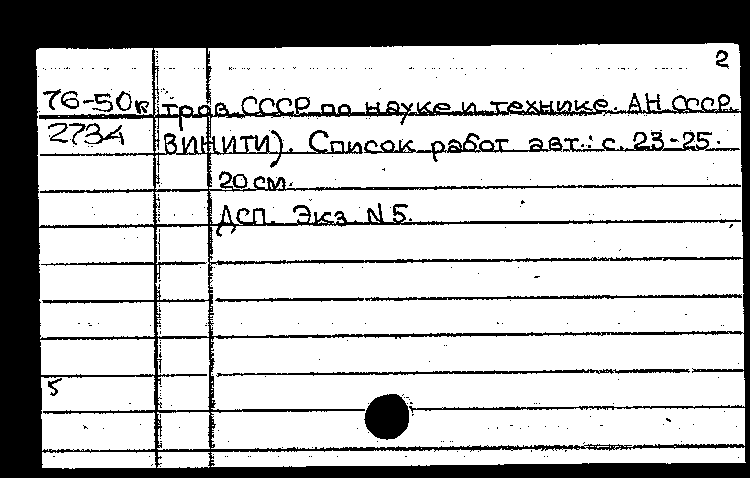 2
76-50к тров СССР по науке и технике. АН СССР.
2734 ВИНИТИ). Список работ авт.: с. 23-25.
20 см.
Дсп. Экз. N 5.
5